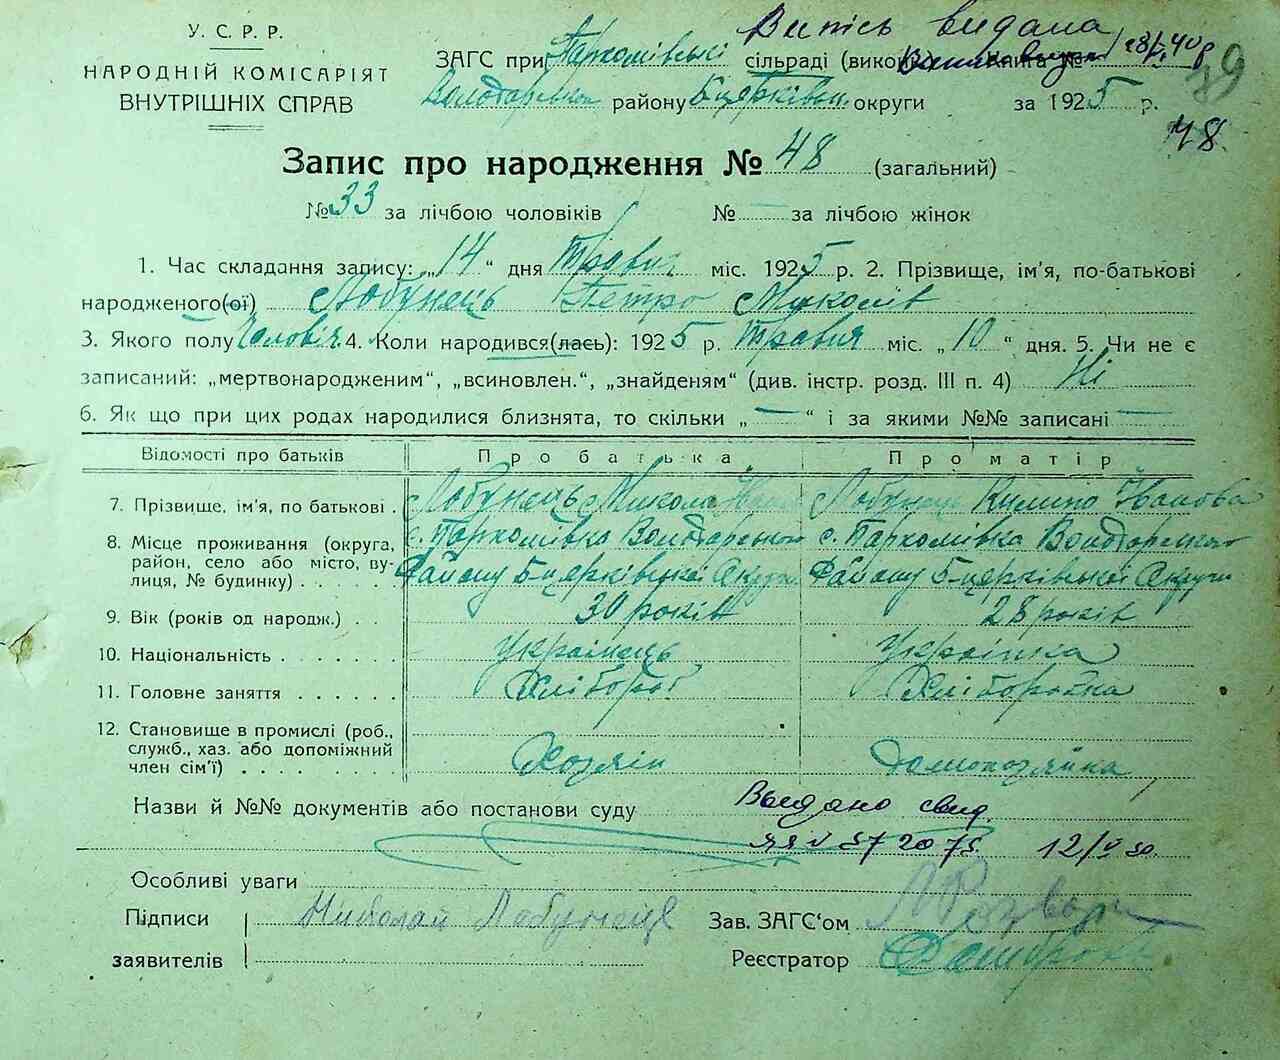 У. С. Р. Р.
НАРОДНІЙ КОМІСАРІЯТ
ВНУТРІШНІХ СПРАВ
Випись видана
ЗАГС при Пархомівські сільраді (викон) Книга № 28/ 40 р
Володарськ району Б церківськ. округи за 1925 р.
79
48.
Запис про народження № 48 (загальний)
№ 33 за лічбою чоловіків № — за лічбою жінок
1. Час складання запису: „14“ дня Травня міс. 1925 р. 2. Прізвище, ім'я, по-батькові
народженого(ої) Лобунець Петро Миколів
3. Якого полу Чоловіч. 4. Коли народився(лась): 1925 р. Травня міс. „10“ дня. 5. Чи не є
записаний: „мертвонародженим“, „всиновлен.“, „знайденям“ (див. інстр. розд. III п. 4) Ні
6. Як що при цих родах народилися близнята, то скільки „—“ і за якими №№ записані —
Відомості про батьків Про батька Про матір
7. Прізвище, ім'я, по батькові . Лобунець Микола Лобунець Килина Іванова
8. Місце проживання (округа, район, село або місто, вулиця, № будинку) . . . . .
с. Пархомівка Володарського с. Пархомівка Володарського
Району Б-церківської Округи Району Б-церківської Округи
9. Вік (років од народж.) . . 30 років 28 років
10. Національність . . . . . . . Українець Українка
11. Головне заняття . . . . . . Хлібороб Хліборобка
12. Становище в промислі (роб., служб., хаз. або допоміжний член сім'ї) . . . . . . . .
Хозяін Домохозяйка
Назви й №№ документів або постанови суду Выдано свид.
12/V 50.
Особливі уваги
Підписи Николай Лобунець Зав. ЗАГС'ом
заявителів Реєстратор